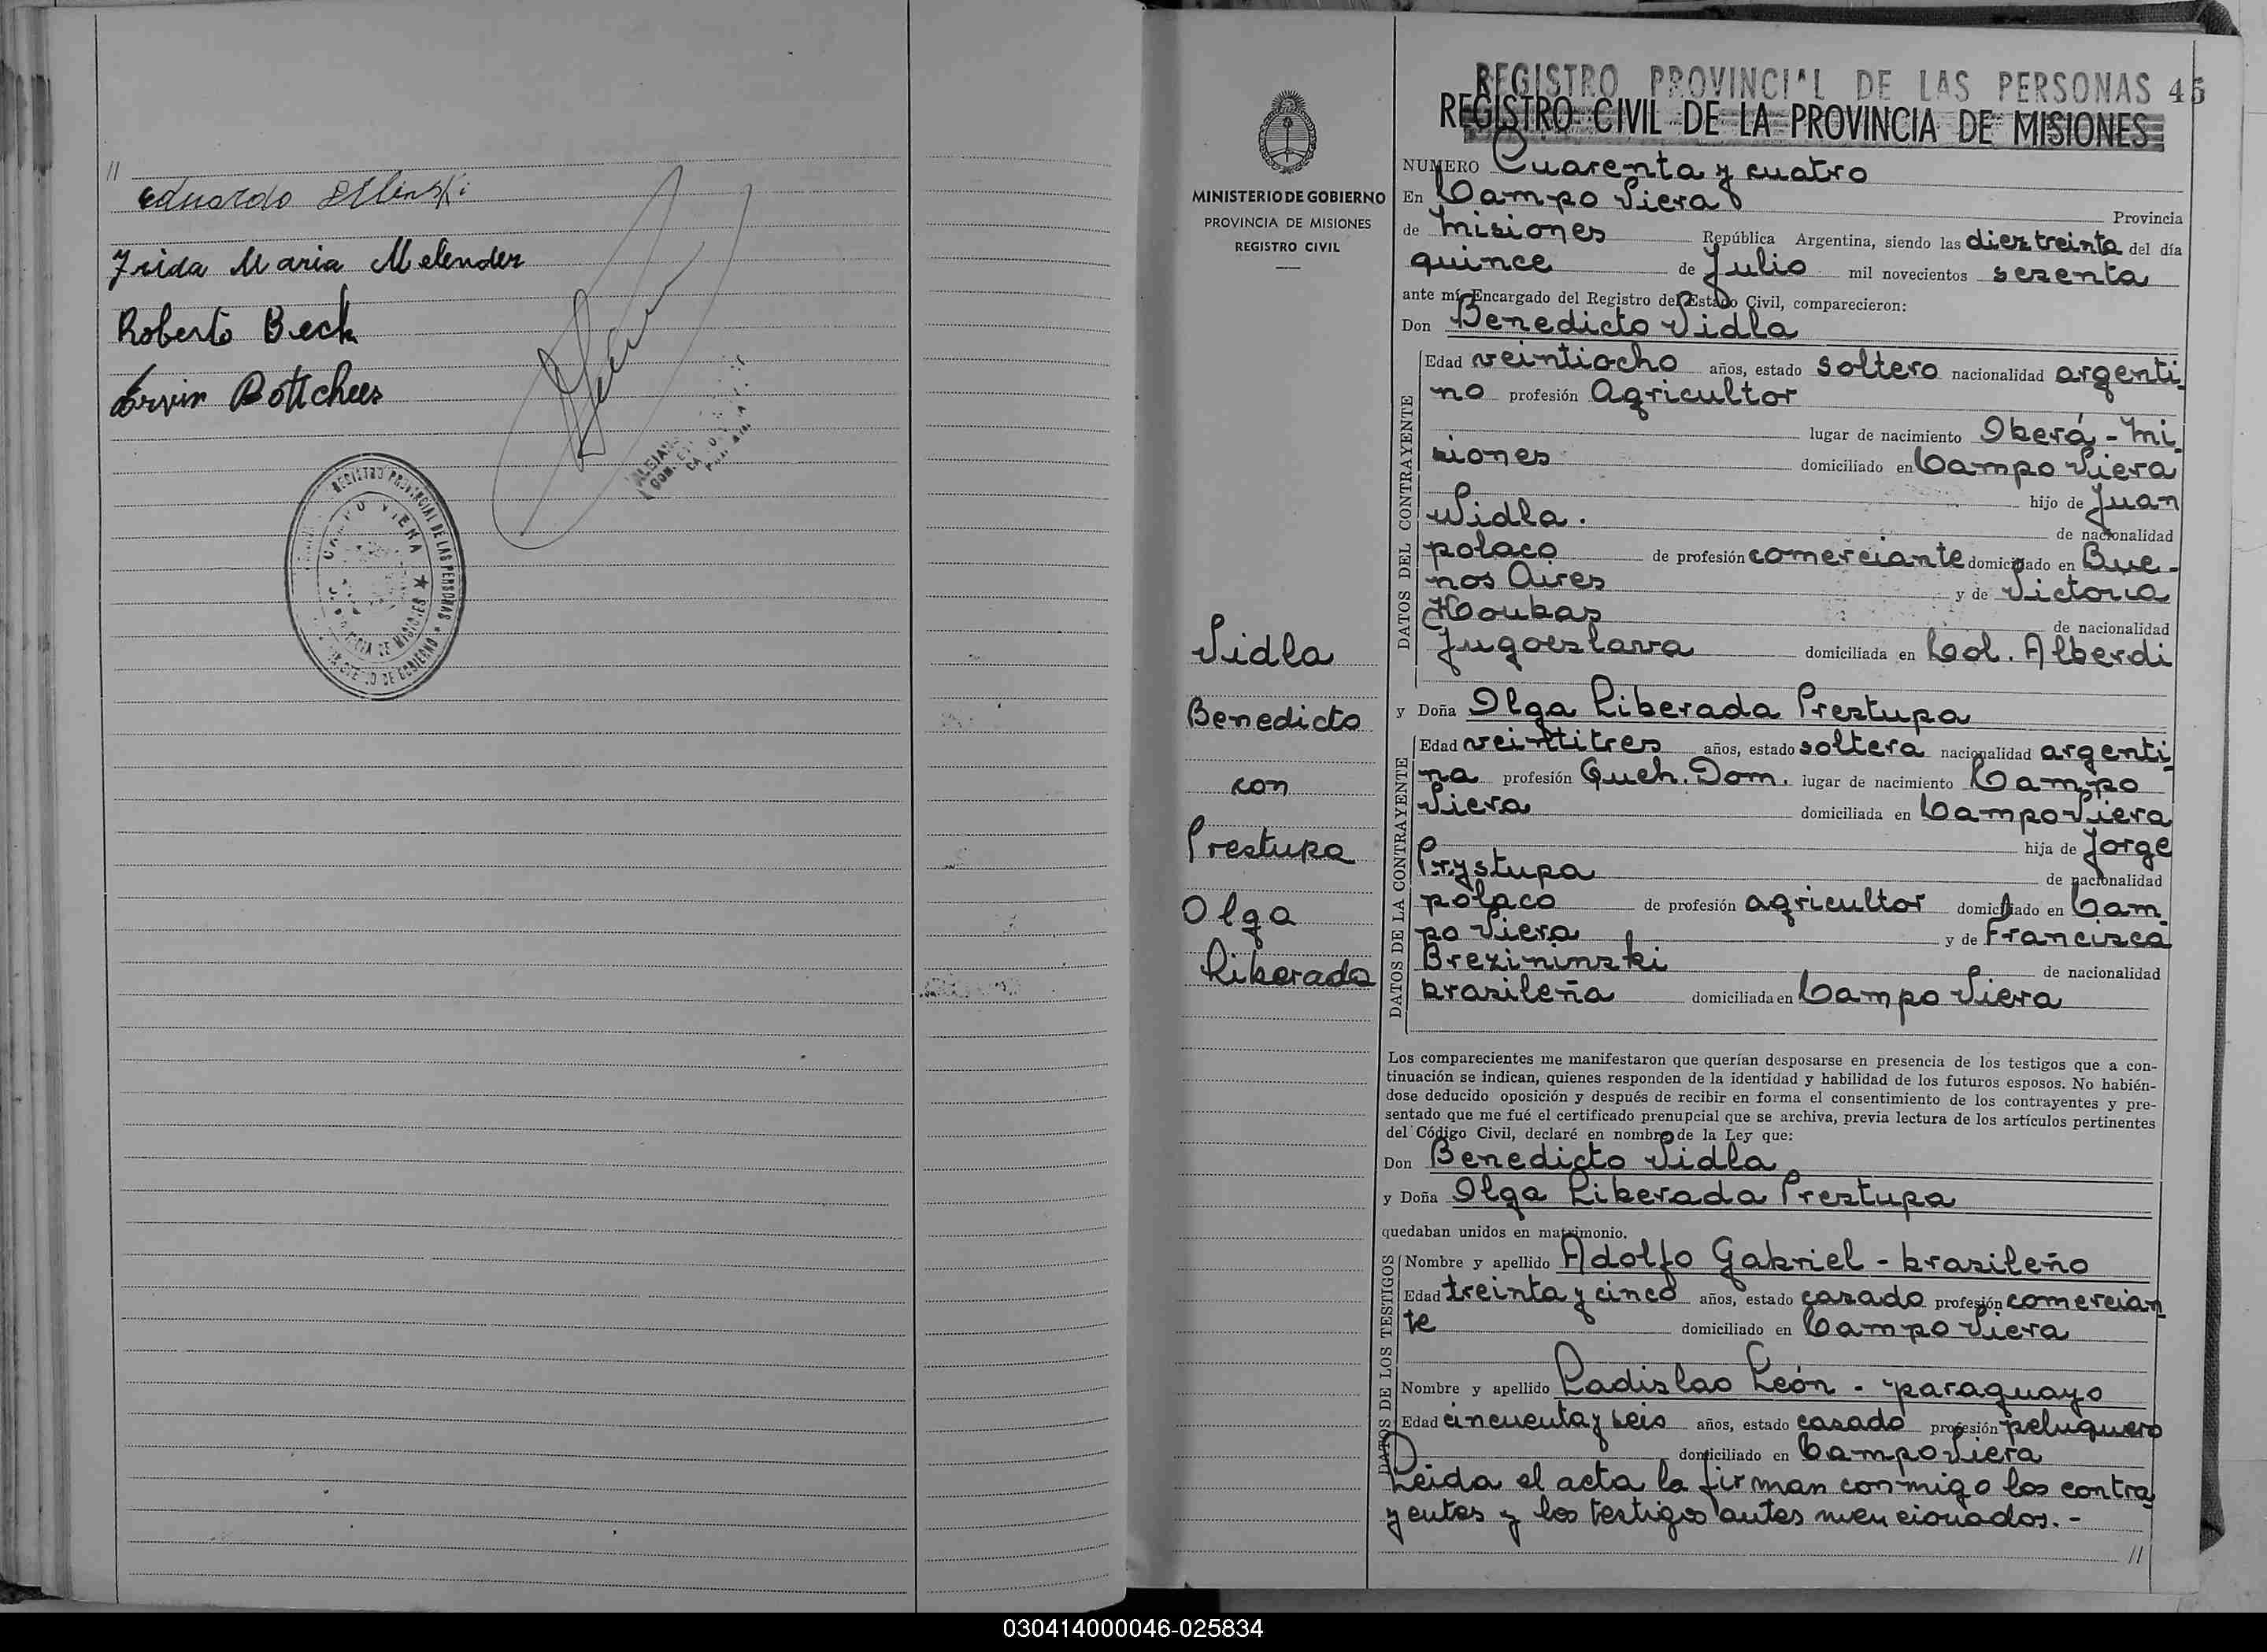 //
Frida Maria Melender
Roberto Beck
REGISTRO PROVINCIAL DE LAS PERSONAS
CAMPO VIERA
PROVINCIA DE MISIONES
MINISTERIO DE GOBIERNO
MINISTERIO DE GOBIERNO
PROVINCIA DE MISIONES
REGISTRO CIVIL
Vidla
Benedicto
con
Prestupa
Olga
Liberada
REGISTRO PROVINCIAL DE LAS PERSONAS 45
REGISTRO CIVIL DE LA PROVINCIA DE MISIONES
NUMERO Cuarenta y cuatro
En Campo Viera
Provincia
de Misiones República Argentina, siendo las diez treinta del día
quince de Julio mil novecientos sesenta
ante mí, Encargado del Registro del Estado Civil, comparecieron:
Don Benedicto Vidla
DATOS DEL CONTRAYENTE
Edad veintiocho años, estado soltero nacionalidad argenti-
no profesión Agricultor
lugar de nacimiento Oberá - Mi-
siones domiciliado en Campo Viera
hijo de Juan
Vidla.
de nacionalidad
polaco de profesión comerciante domiciliado en Bue-
nos Aires y de Victoria
de nacionalidad
Jugoeslava domiciliada en Col. Alberdi
y Doña Olga Liberada Prestupa
DATOS DE LA CONTRAYENTE
Edad veintitres años, estado soltera nacionalidad argenti-
na profesión Queh. Dom. lugar de nacimiento Campo
Viera domiciliada en Campo Viera
hija de Jorge
Prystupa
de nacionalidad
polaco de profesión agricultor domiciliado en Cam-
po Viera y de Francisca
Brezininski
de nacionalidad
brasileña domiciliada en Campo Viera
Los comparecientes me manifestaron que querían desposarse en presencia de los testigos que a con-
tinuación se indican, quienes responden de la identidad y habilidad de los futuros esposos. No habién-
dose deducido oposición y después de recibir en forma el consentimiento de los contrayentes y pre-
sentado que me fué el certificado prenupcial que se archiva, previa lectura de los artículos pertinentes
del Código Civil, declaré en nombre de la Ley que:
Don Benedicto Vidla
y Doña Olga Liberada Prestupa
quedaban unidos en matrimonio.
DATOS DE LOS TESTIGOS
Nombre y apellido Adolfo Gabriel - brasileño
Edad treinta y cinco años, estado casado profesión comercian-
te domiciliado en Campo Viera
Nombre y apellido Ladislao León - paraguayo
Edad cincuenta y seis años, estado casado profesión peluquero
domiciliado en Campo Viera
Leida el acta la firman conmigo los contra-
yentes y los testigos antes mencionados. -
//
030414000046-025834